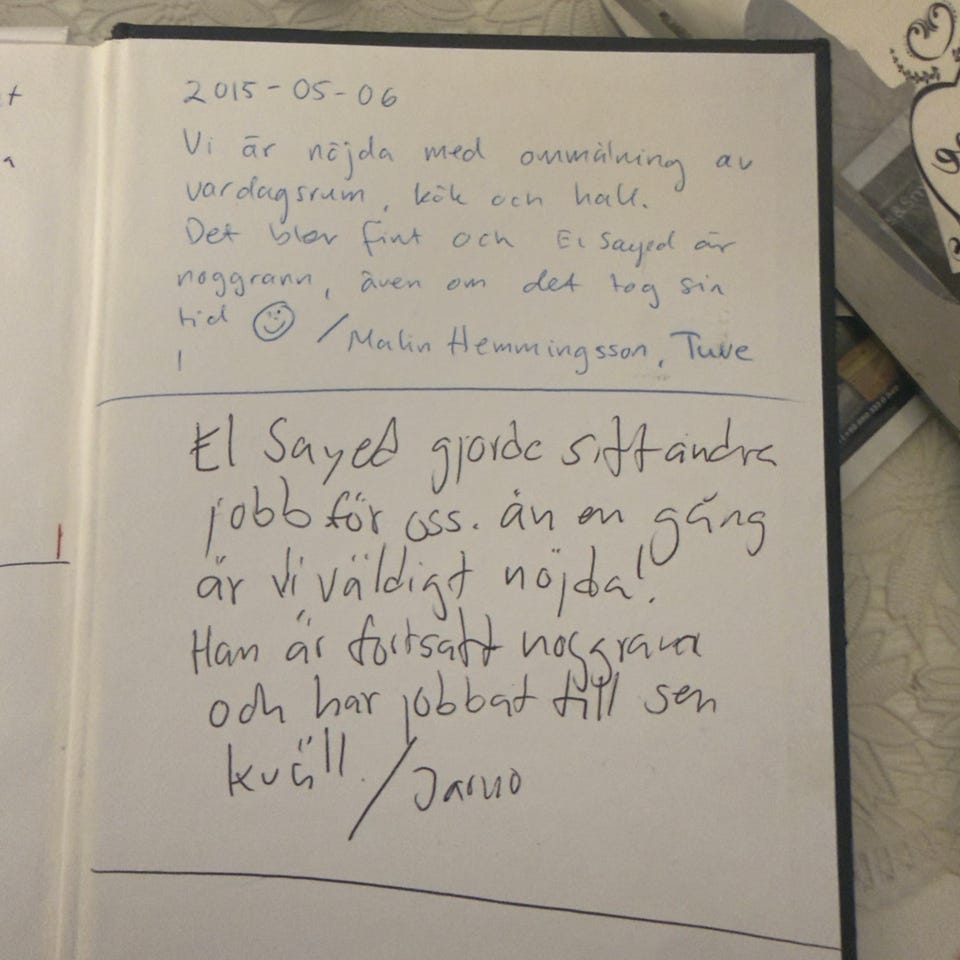 2015-05-06
Vi är nöjda med ommålning av
vardagsrum, kök och hall.
Det blev fint och El Sayed är
noggrann, även om det tog sin
tid ☺ /Malin Hemmingsson, Tuve
El Sayed gjorde sitt andra
jobb för oss. än en gång
är vi väldigt nöjda!
Han är fortsatt noggrann
och har jobbat till sen
kväll. /Jarno